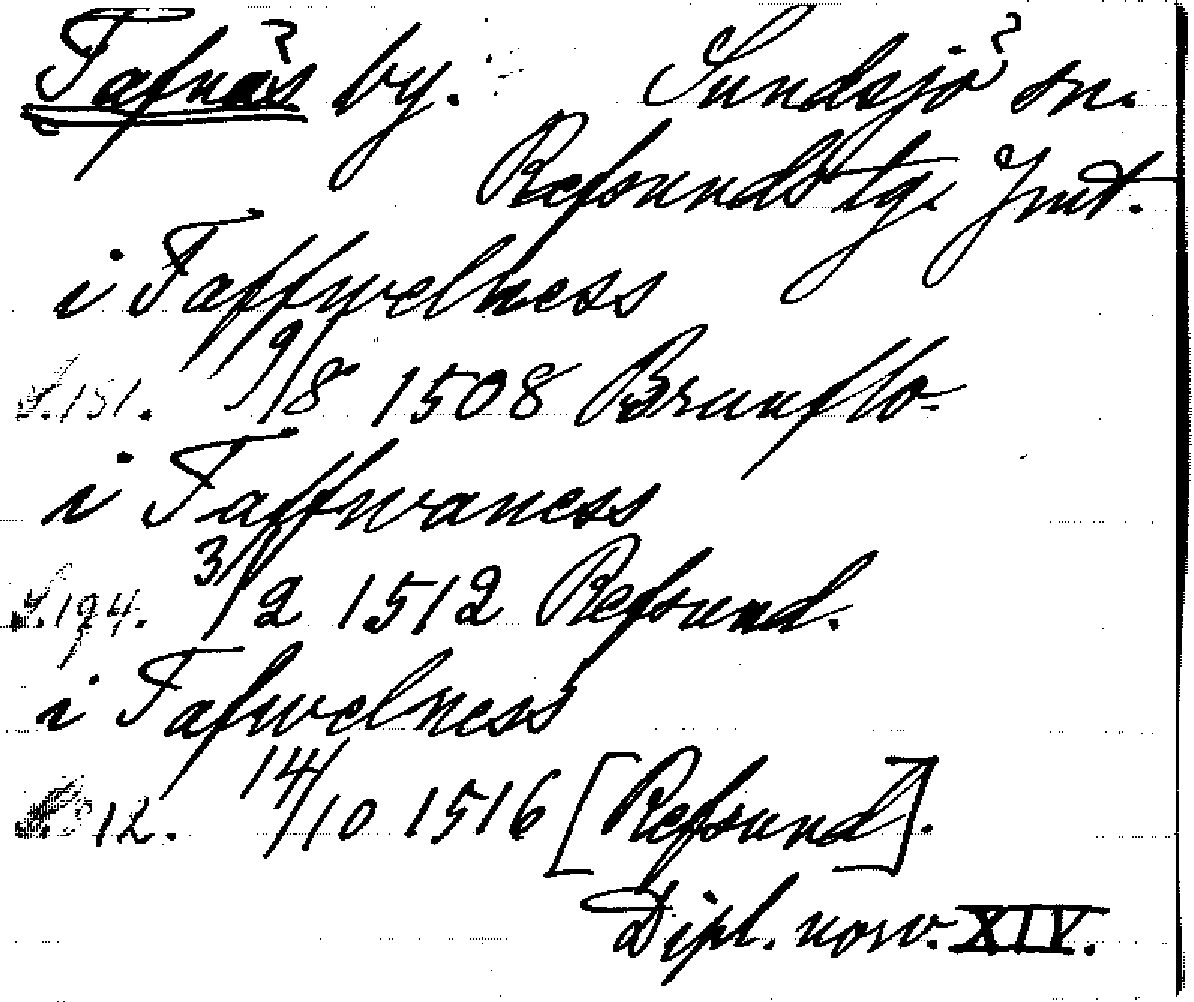 Tafnäs by. Sundsjö sn.
Refsunds tg. Jmt.
i Taffwelness
S. 151. 9/8 1508 Brunflo.
i Taffwaness
S. 194. 3/2 1512 Refsund.
i Tafwelness
12. 14/10 1516 [Refsund].
Dipl. norv. XIV.